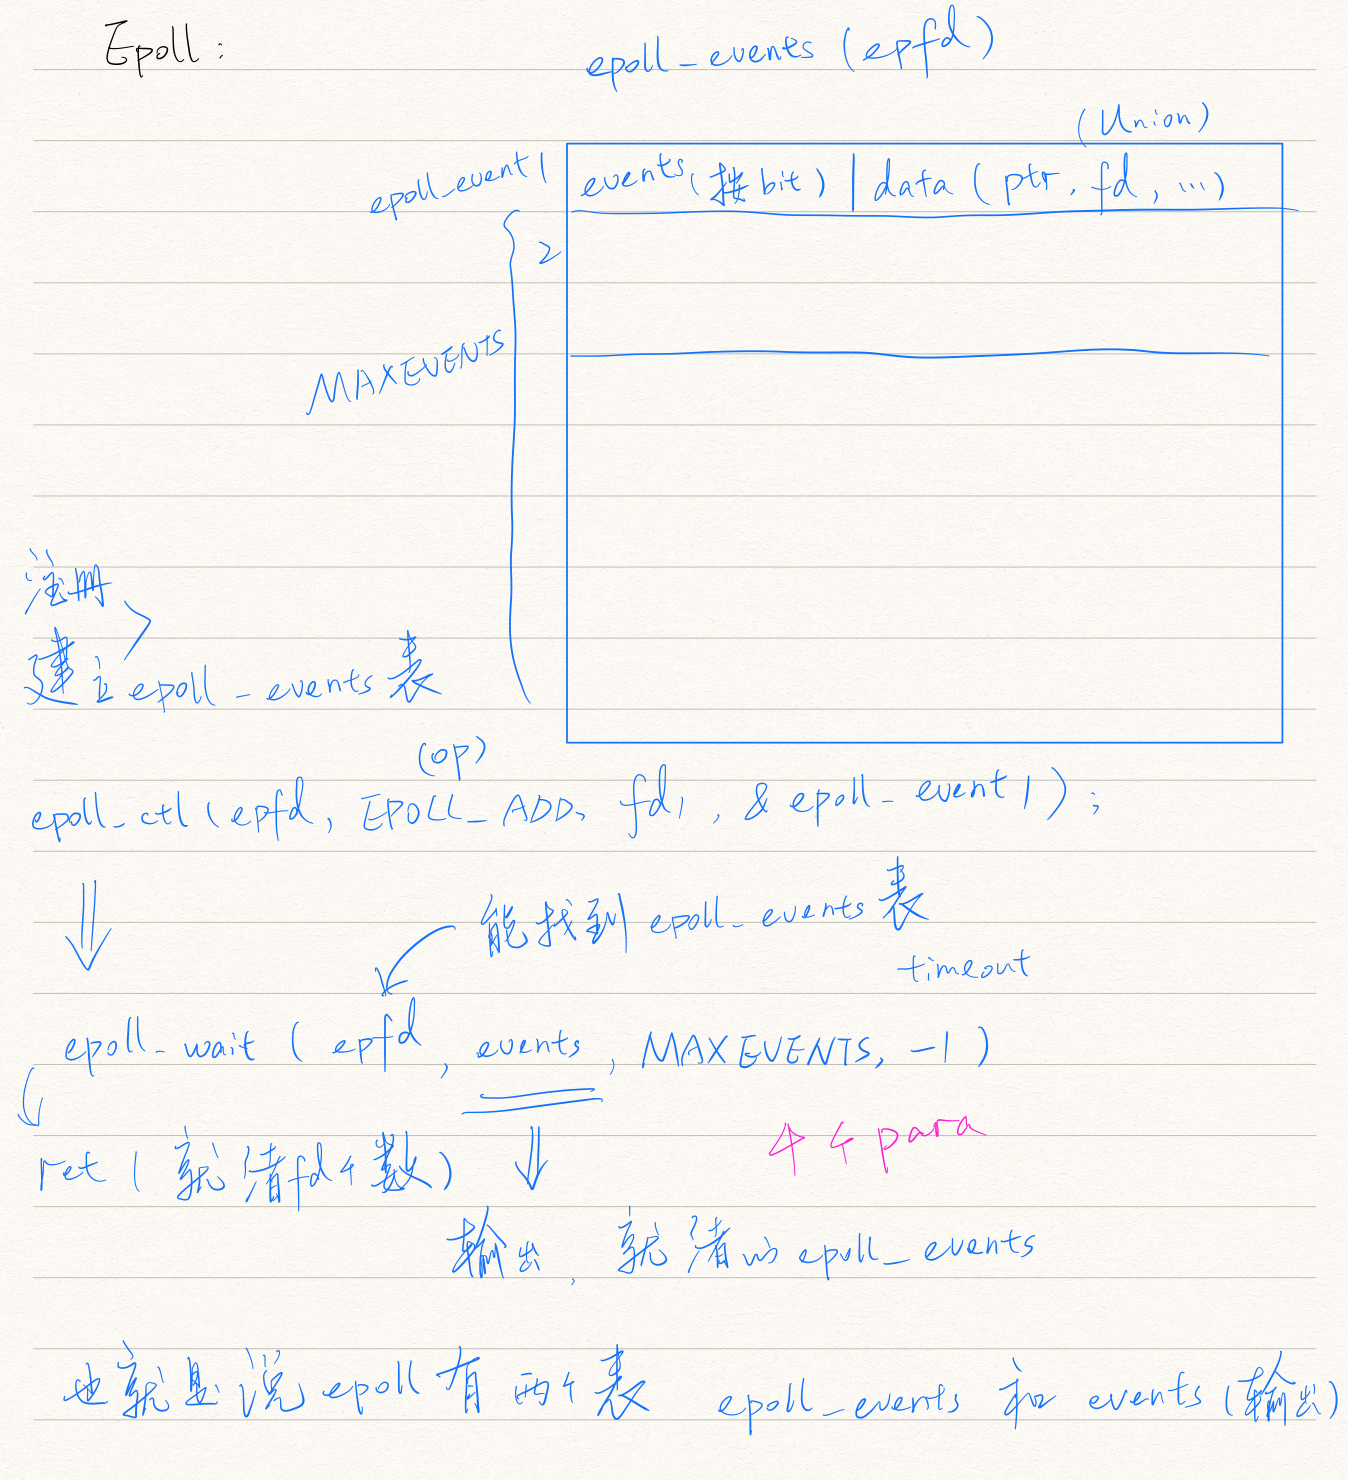 Epoll:
epoll_events (epfd)
(Union)
epoll_event1
events(按bit) | data (ptr, fd, ...)
2
MAXEVENTS
注册
建立epoll_events表
(op)
epoll_ctl(epfd, EPOLL_ADD, fd1, &epoll_event1);
能找到epoll_events表
timeout
epoll_wait (epfd, events, MAXEVENTS, -1)
4个para
ret (就绪fd个数)
输出, 就绪的epoll_events
也就是说epoll有两个表 epoll_events 和 events(输出)